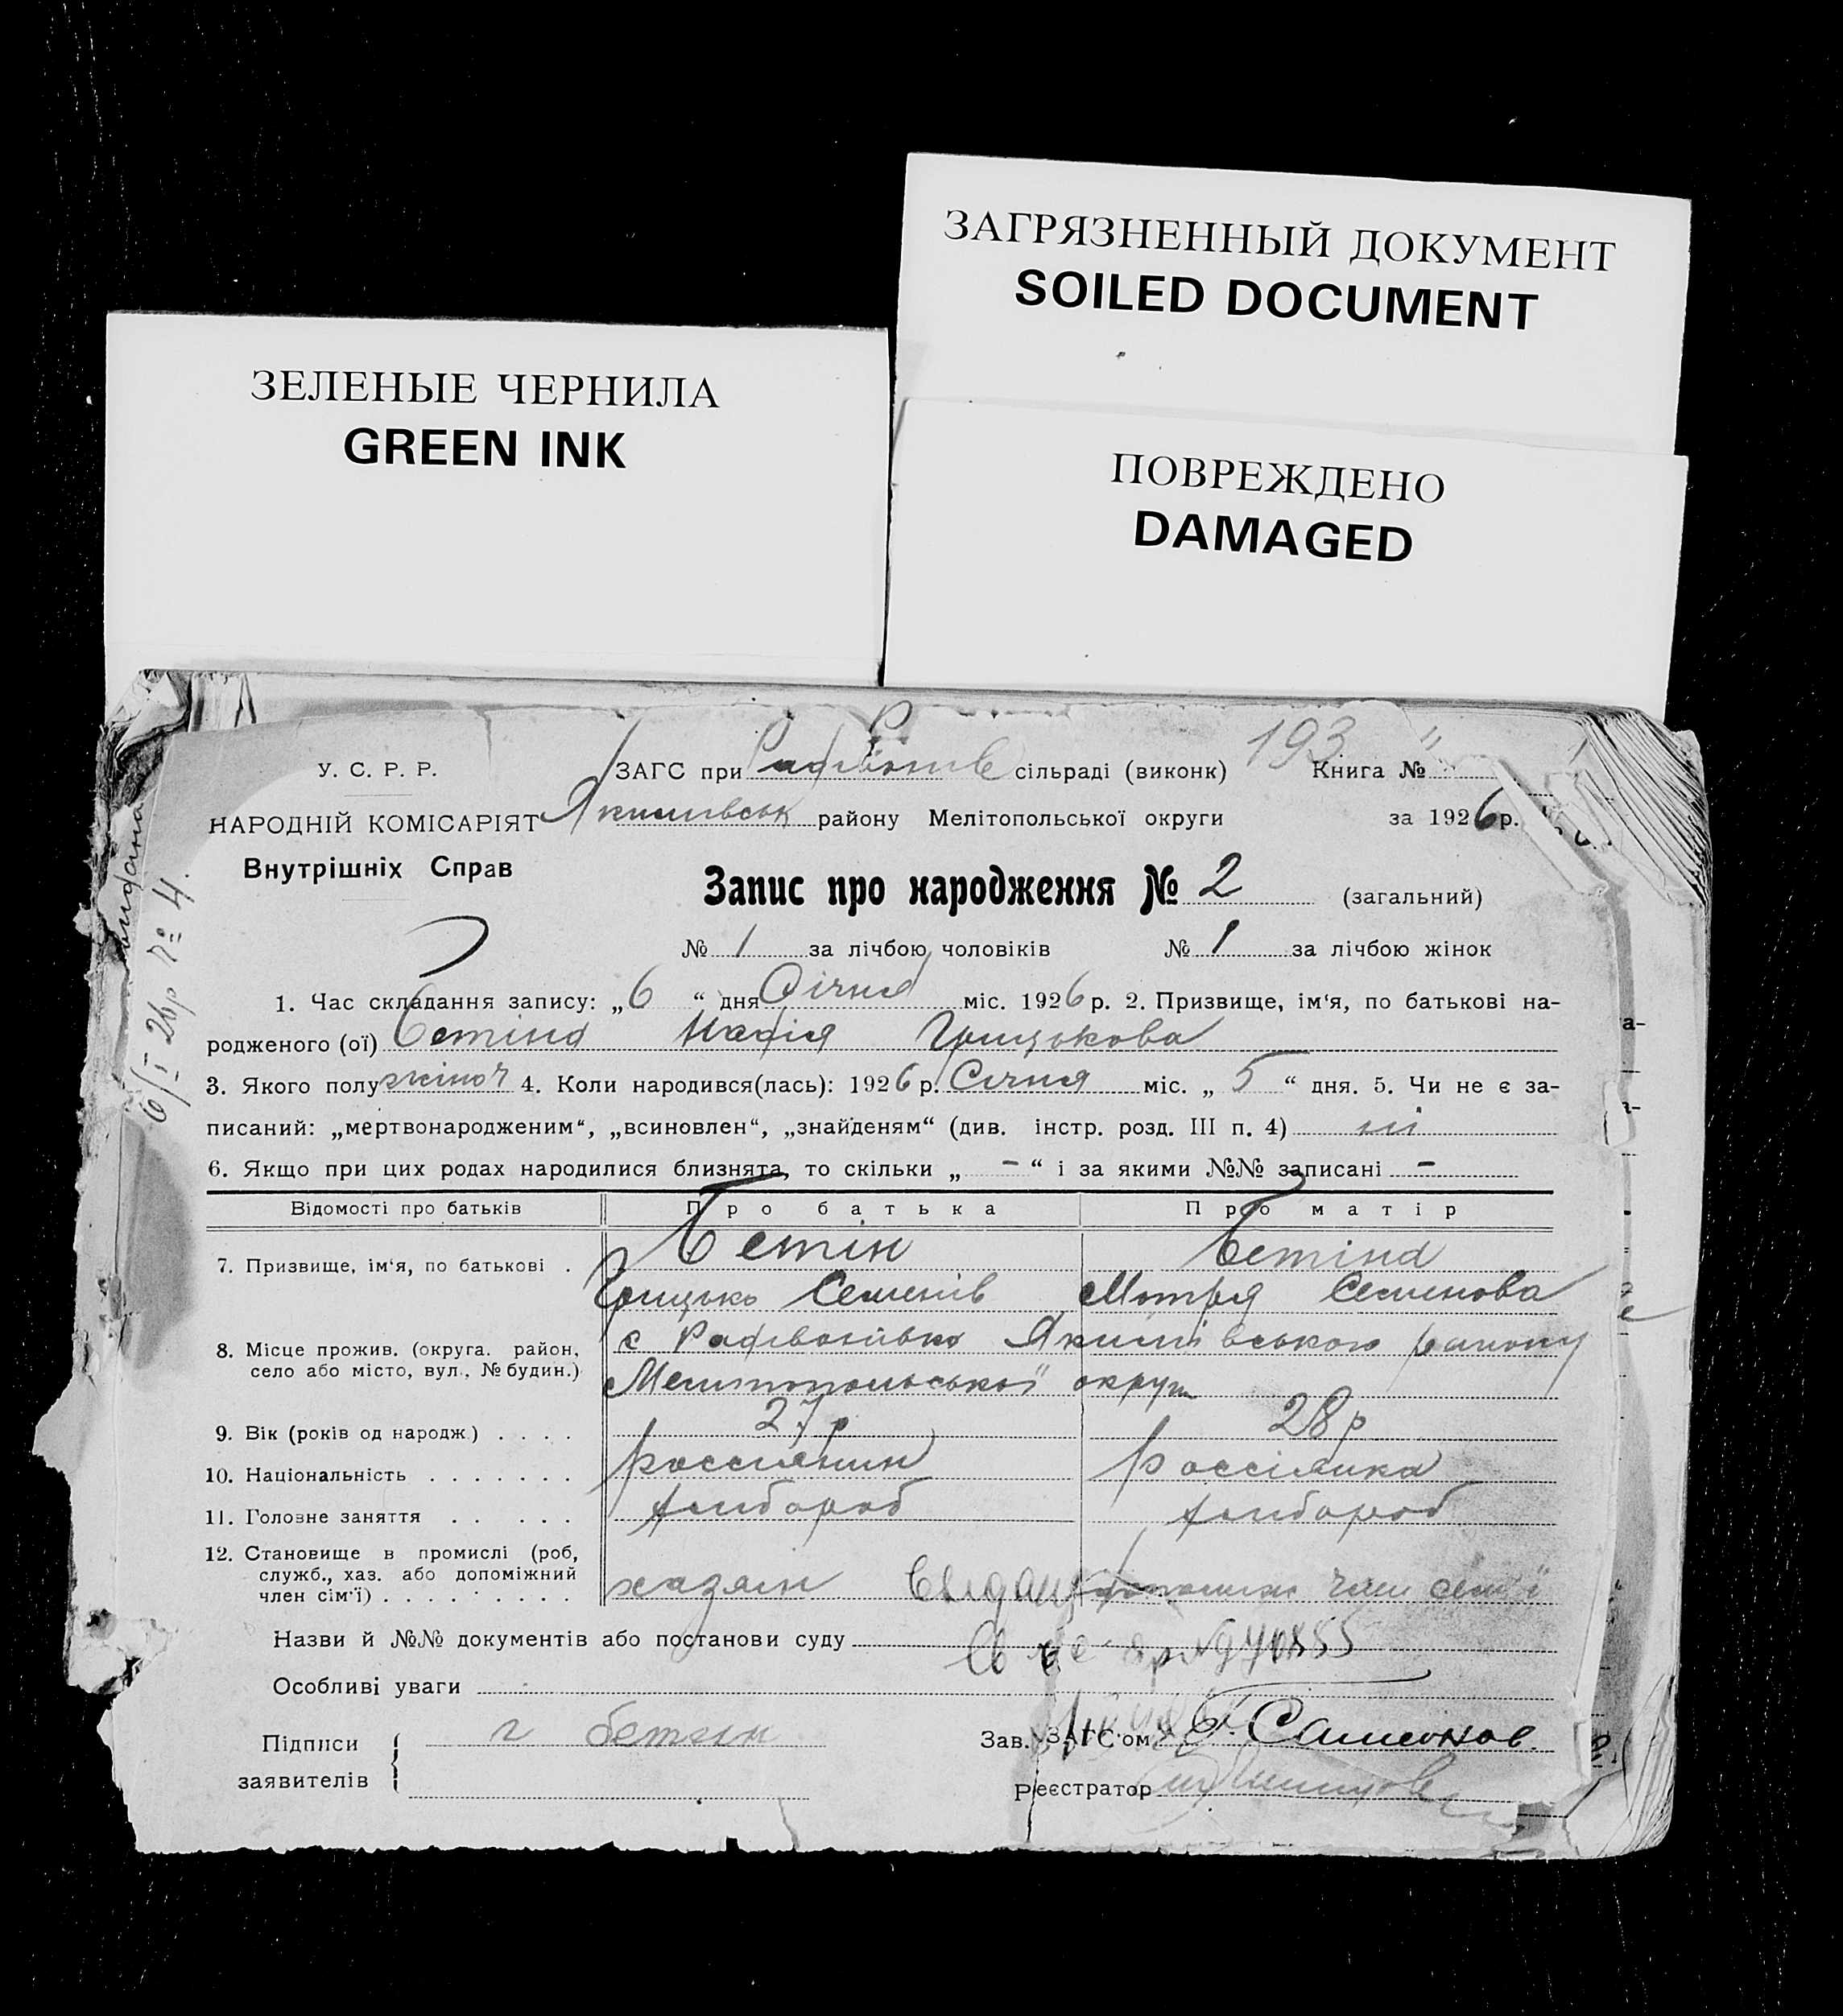 ЗАГРЯЗНЕННЫЙ ДОКУМЕНТ
SOILED DOCUMENT
ЗЕЛЕНЫЕ ЧЕРНИЛА
GREEN INK
ПОВРЕЖДЕНО
DAMAGED
193
У. С. Р. Р.
ЗАГС при сільраді (виконк) Книга №
НАРОДНІЙ КОМІСАРІЯТ
Якимівськ району Мелітопольської округи за 1926 р.
Внутрішніх Справ
Запис про народження № 2 (загальний)
№ 1 за лічбою чоловіків № 1 за лічбою жінок
6/I 26р № 4.
1. Час складання запису: „6“ дня Січня міс. 1926 р. 2. Призвище, ім‘я, по батькові на-
родженого (ої) Бетіна Марія Грицькова
3. Якого полу жіноч 4. Коли народився(лась): 1926 р. Січня міс. „5“ дня. 5. Чи не є за-
писаний: „мертвонародженим“, „всиновлен“, „знайденям“ (див. інстр. розд. III п. 4) ні
6. Якщо при цих родах народилися близнята, то скільки „-“ і за якими №№ записані -
Відомості про батьків Про батька Про матір
7. Призвище, ім‘я, по батькові . Бетін Бетіна
Грицько Семенів Мотря Семенова
8. Місце прожив. (округа. район, село або місто, вул., № будин.) с Якимівського району
Мелитопольської округи
9. Вік (років од народж.) . . . . 27 р 28 р
10. Національність . . . . . . . россиянин россіянка
11. Головне заняття . . . . . хлібороб хлібороб
12. Становище в промислі (роб,
служб., хаз. або допоміжний
член сім‘ї) . . . . . . . . . хазяін допоміж член сем'ї
Назви й №№ документів або постанови суду
Особливі уваги
Підписи
заявителів
г бетин
Зав. ЗАГС‘ом Самсонов
Реєстратор